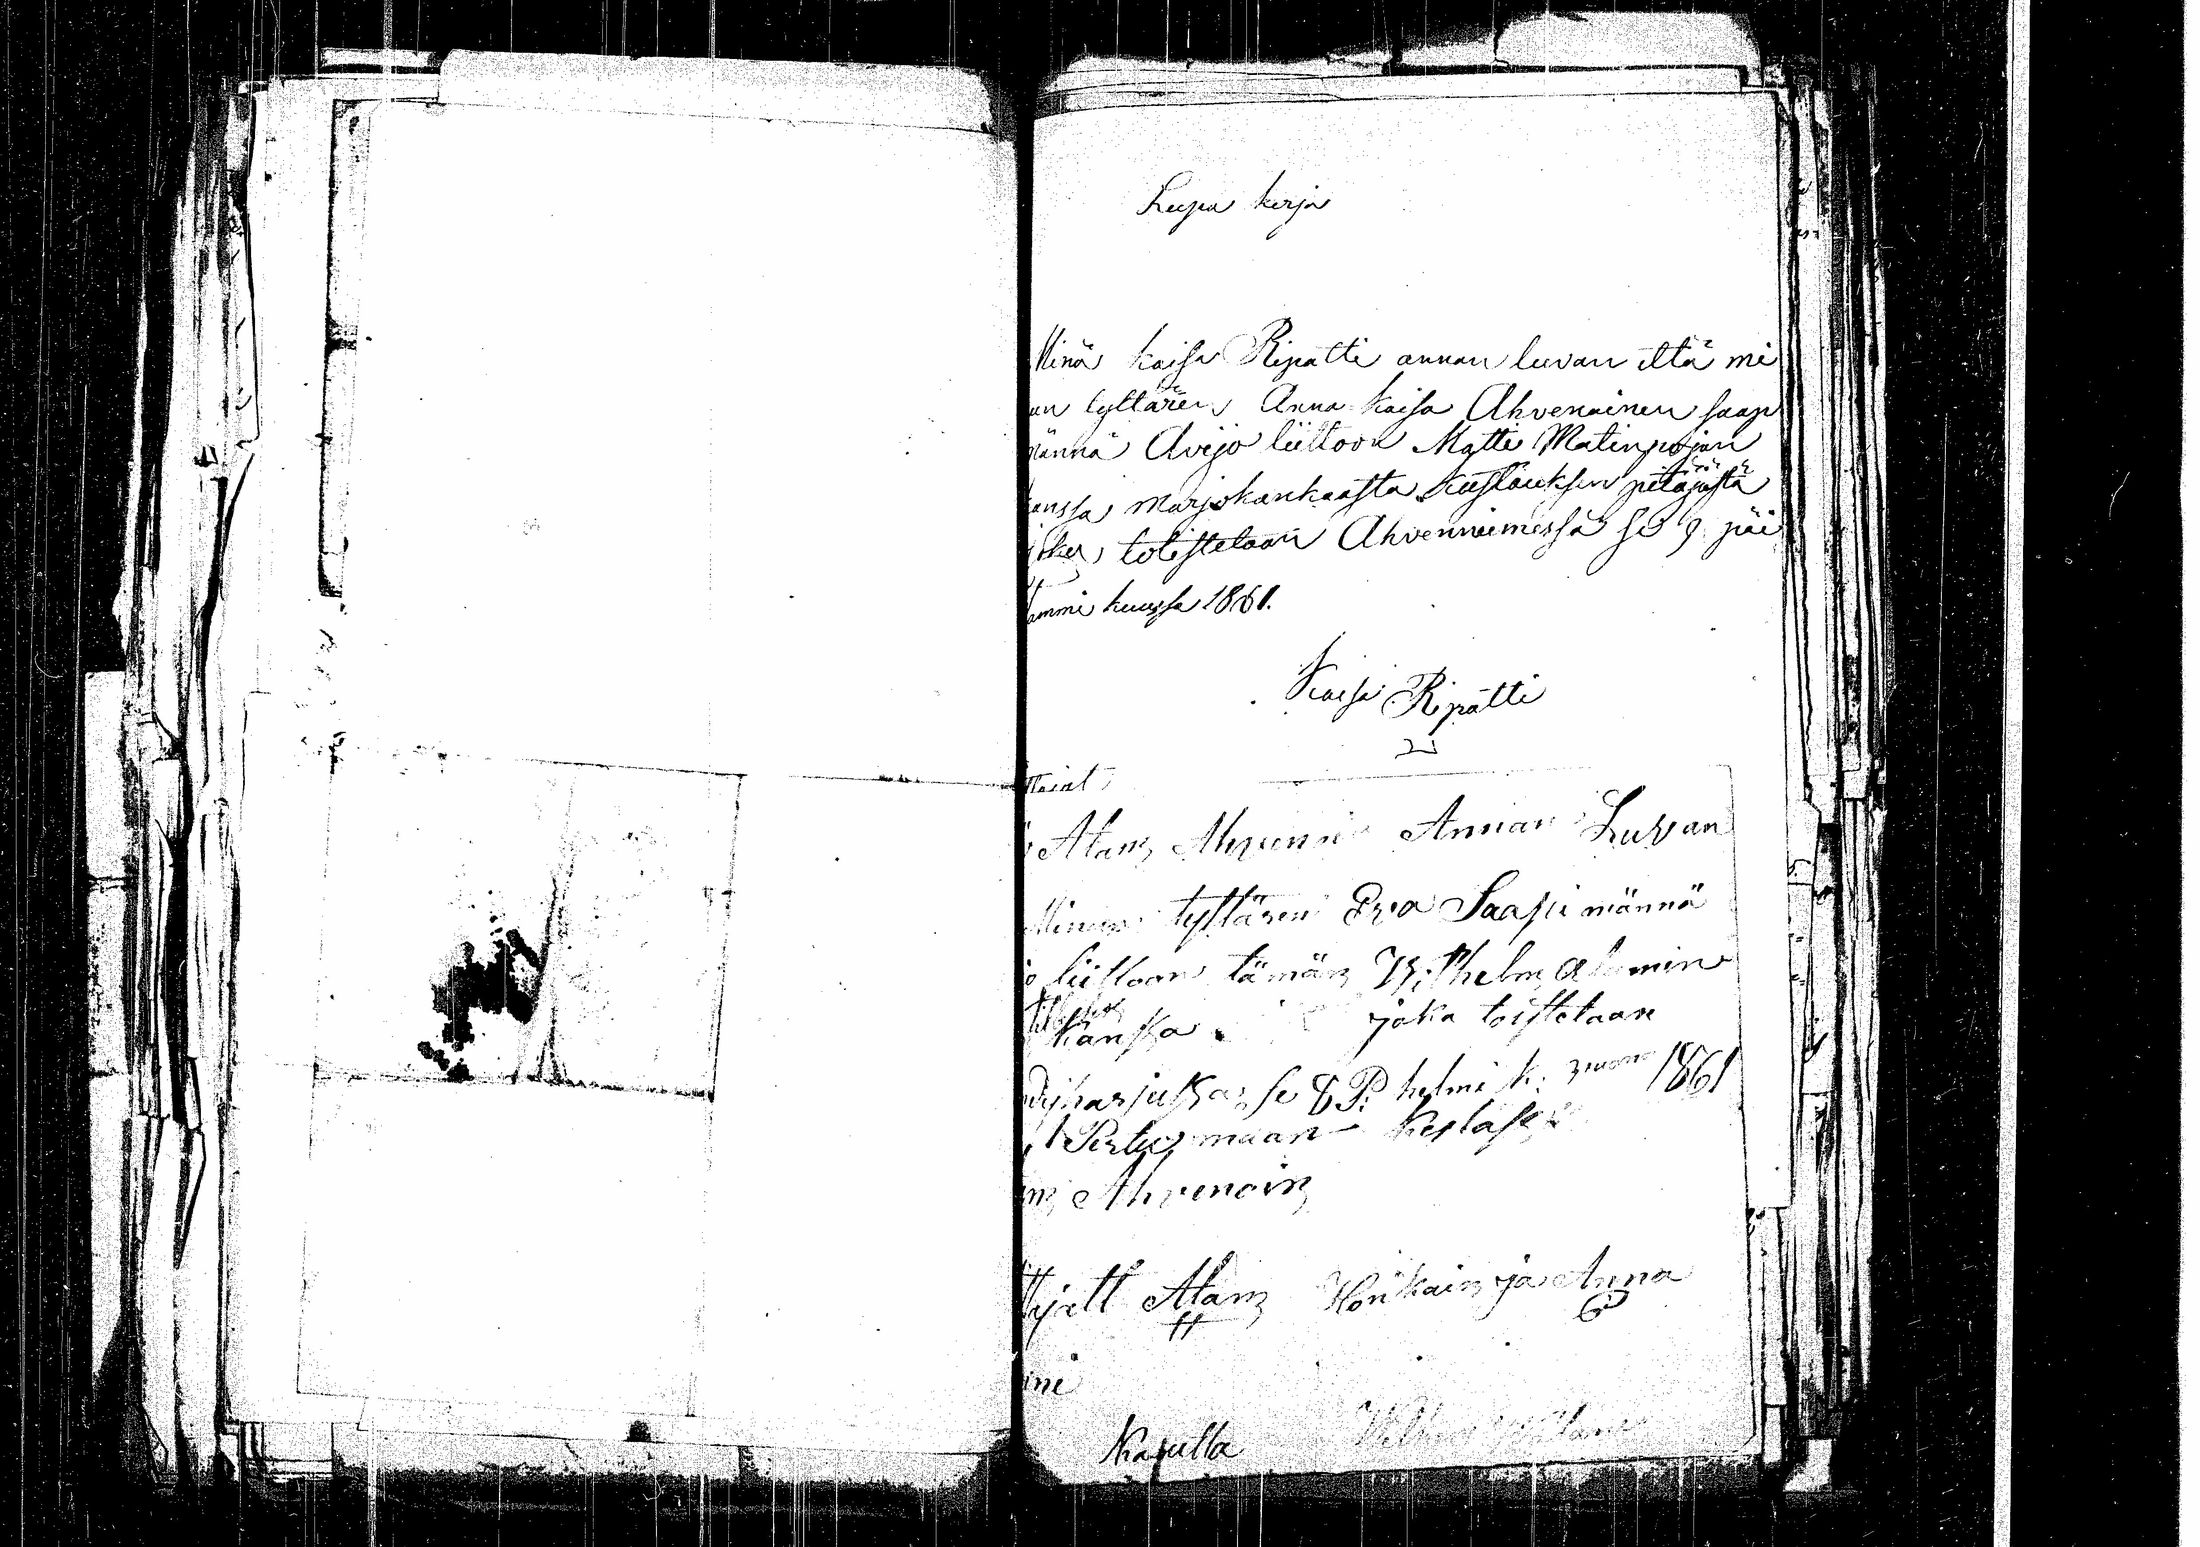 Lupa kirja
Minä kaisa Ripatti annan luvan että mi
an tyttären Anna kaisa Ahvenainen saap
männä Avijo liittoon Matti Matinpojan
kanssa marjokankaasta kustäuksen pitäjästä
joka totistetaan Ahvenniemessä se 9 päi
tammi kuussa 1861.
Kaisa Ripatti
ttajat
Atam Ahvenn Annan Luvan
Minun tyttären Eva Saapi männä
jo liittoon tämän Vilhelm Atamin
kanssa joka toistetaan
harjussa se 8 P: helmi k: vuonna 1861
Pertusmaan
Ahvenain
Atam Honkain ja Anna
ine
Kapulta